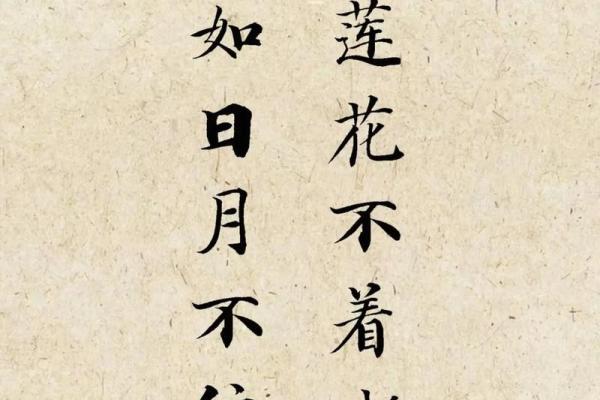 莲花不着
如日月不